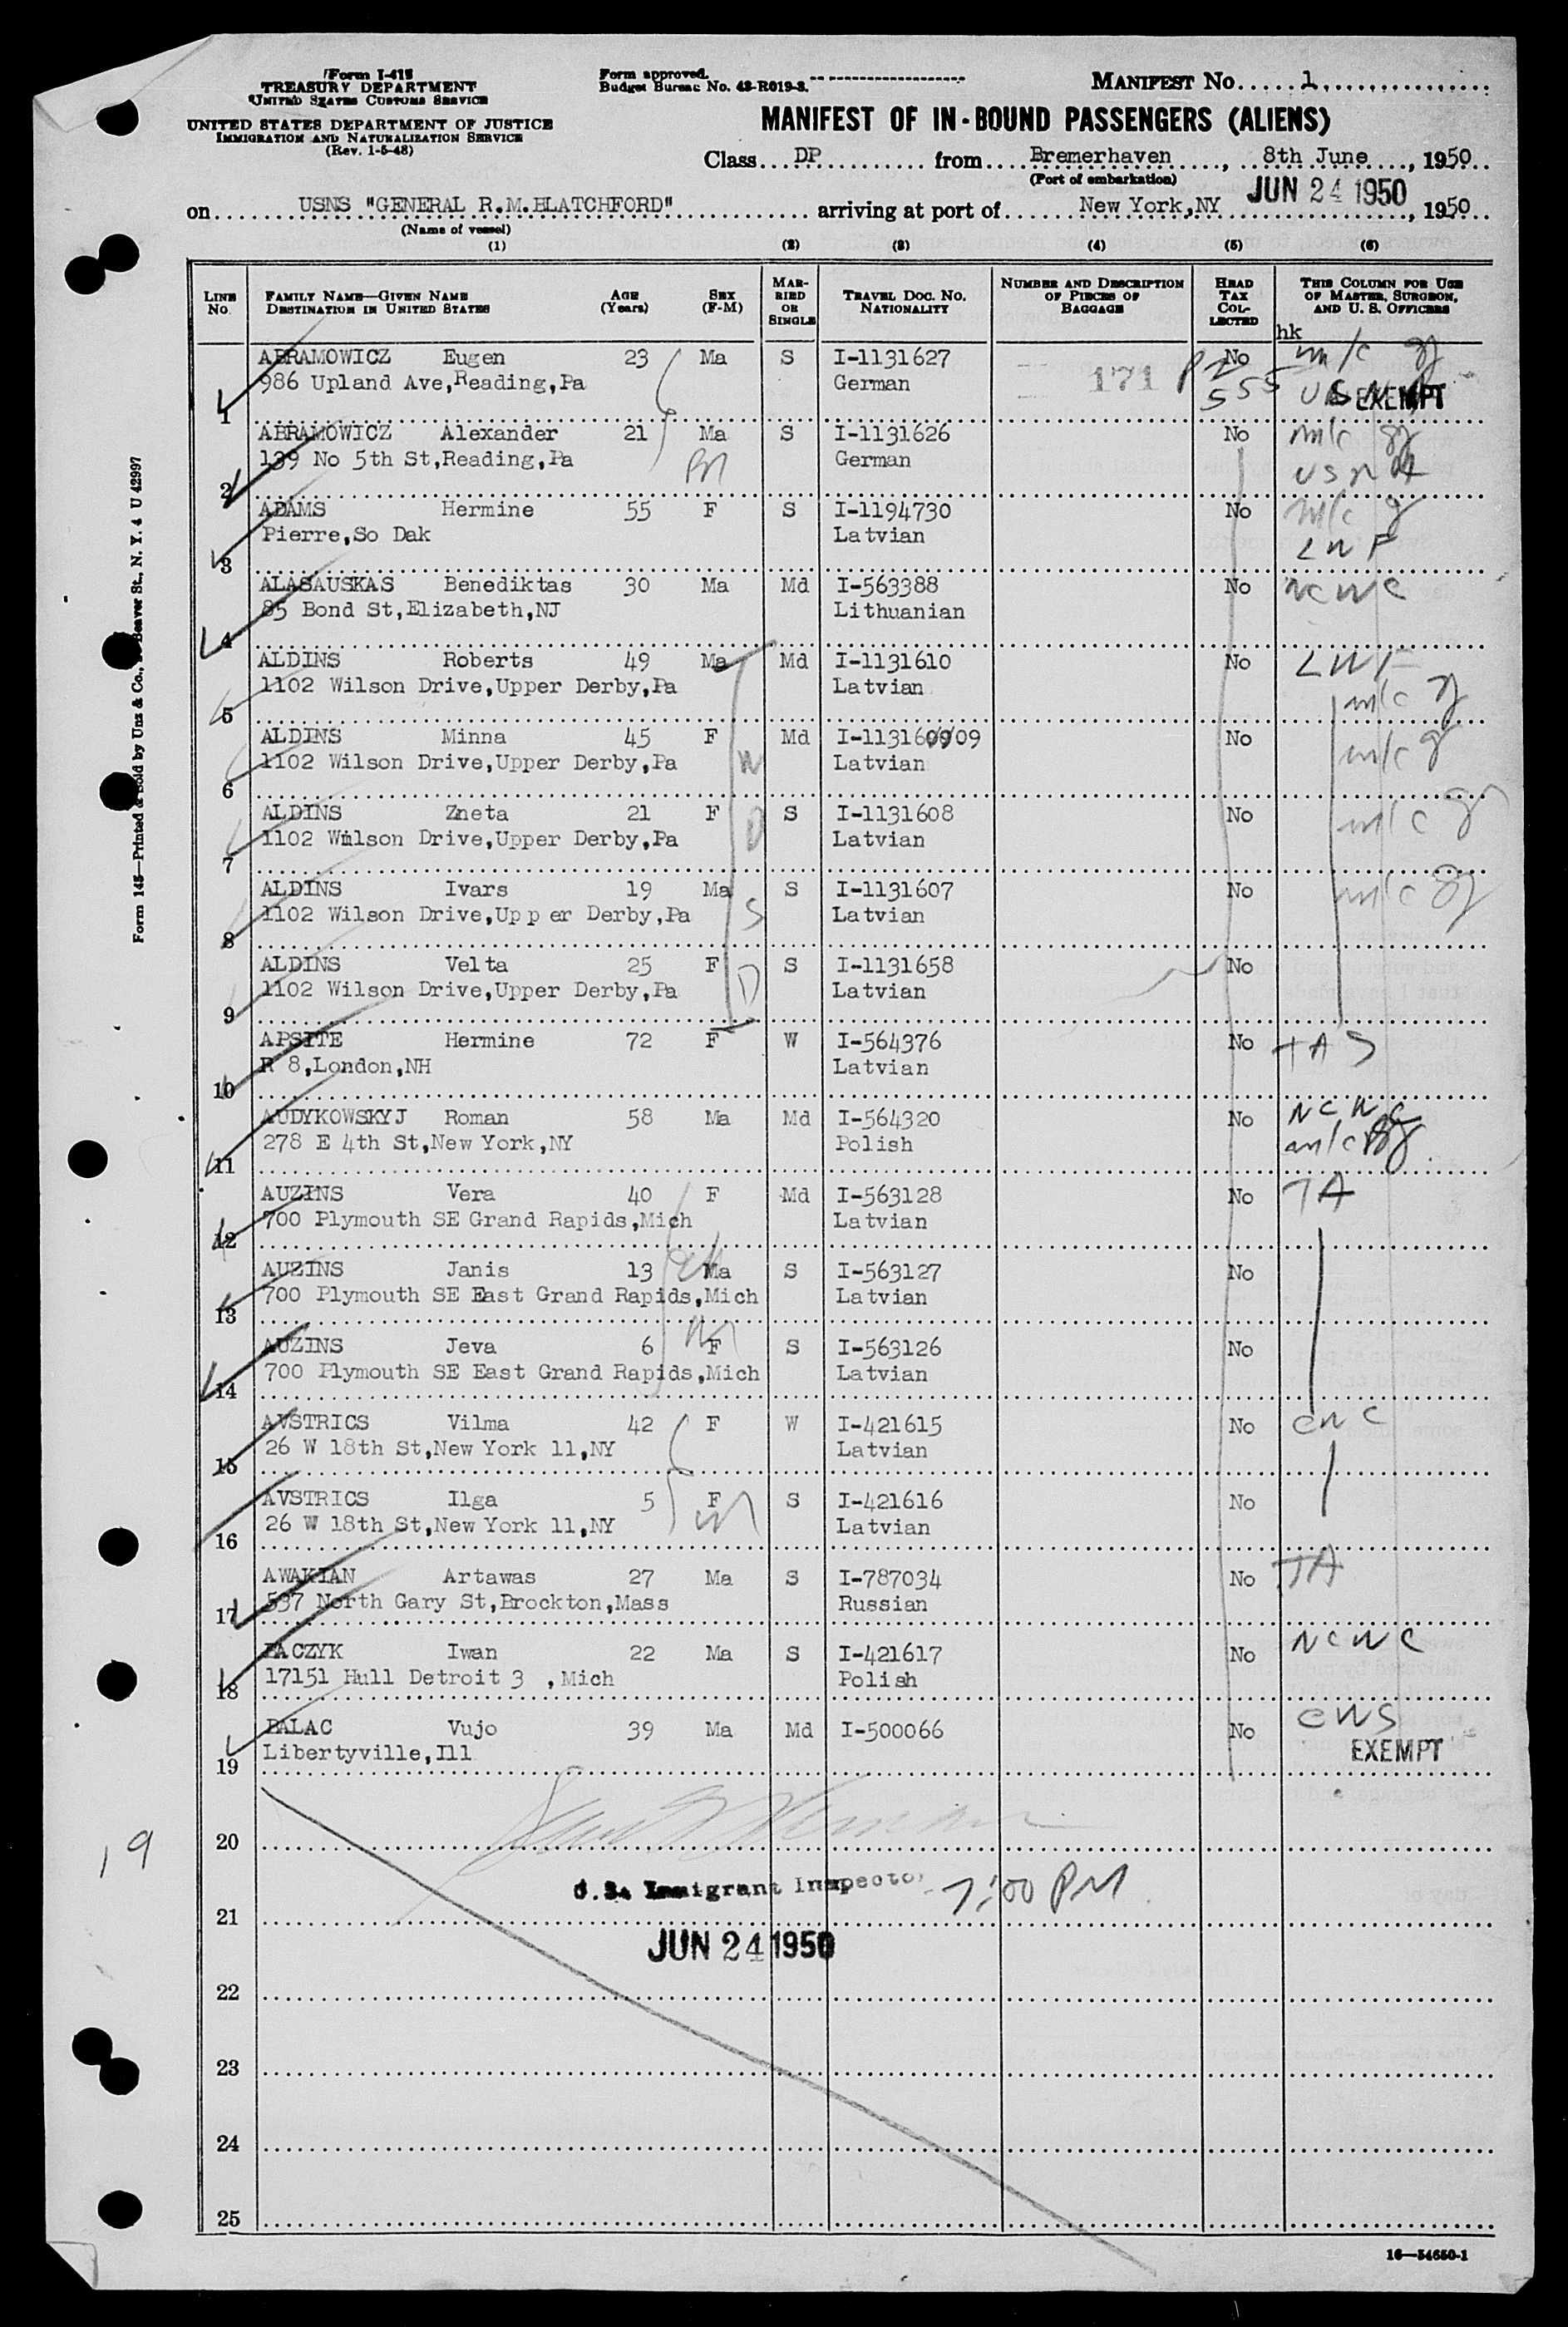 Form I-418
TREASURY DEPARTMENT
UNITED STATES CUSTOMS SERVICE
UNITED STATES DEPARTMENT OF JUSTICE
IMMIGRATION AND NATURALIZATION SERVICE
(Rev. 1-5-48)
Form approved.
Budget Bureau No. 43-R019-3.
MANIFEST NO. 1
MANIFEST OF IN-BOUND PASSENGERS (ALIENS)
Class DP from Bremerhaven, 8th June, 1950
(Port of embarkation)
JUN 24 1950
on USNS "GENERAL R.M.BLATCHFORD" arriving at port of New York,NY, 1950
(Name of vessel)
(1) (2) (3) (4) (5) (6)
LINE NO. FAMILY NAME—GIVEN NAME DESTINATION IN UNITED STATES AGE (Years) SEX (F-M) MARRIED OR SINGLE TRAVEL DOC. NO. NATIONALITY NUMBER AND DESCRIPTION OF PIECES OF BAGGAGE HEAD TAX COLLECTED THIS COLUMN FOR USE OF MASTER, SURGEON, AND U. S. OFFICERS
hk
ABRAMOWICZ Eugen 23 Ma S I-1131627 171 No m/c
1 986 Upland Ave,Reading,Pa German 555 EXEMPT
ABRAMOWICZ Alexander 21 Ma S I-1131626 No m/c
2 139 No 5th St,Reading,Pa German
ADAMS Hermine 55 F S I-1194730 No m/c
3 Pierre,So Dak Latvian LWF
ALASAUSKAS Benediktas 30 Ma Md I-563388 No NCWC
4 85 Bond St,Elizabeth,NJ Lithuanian
ALDINS Roberts 49 Ma Md I-1131610 No LWF
5 1102 Wilson Drive,Upper Derby,Pa Latvian m/c
ALDINS Minna 45 F Md I-11316 09 No m/c
6 1102 Wilson Drive,Upper Derby,Pa Latvian
ALDINS Zneta 21 F S I-1131608 No m/c
7 1102 Wilson Drive,Upper Derby,Pa Latvian
ALDINS Ivars 19 Ma S I-1131607 No m/c
8 1102 Wilson Drive,Upper Derby,Pa Latvian
ALDINS Velta 25 F S I-1131658 No
9 1102 Wilson Drive,Upper Derby,Pa Latvian
APSITE Hermine 72 F W I-564376 No TAS
10 R 8,London,NH Latvian
AUDYKOWSKYJ Roman 58 Ma Md I-564320 No NCWC
11 278 E 4th St,New York,NY Polish m/c
AUZINS Vera 40 F Md I-563128 No TA
12 700 Plymouth SE Grand Rapids,Mich Latvian
AUZINS Janis 13 Ma S I-563127 No
13 700 Plymouth SE East Grand Rapids,Mich Latvian
AUZINS Jeva 6 F S I-563126 No
14 700 Plymouth SE East Grand Rapids,Mich Latvian
AVSTRICS Vilma 42 F W I-421615 No
15 26 W 18th St,New York 11,NY Latvian
AVSTRICS Ilga 5 F S I-421616 No
16 26 W 18th St,New York 11,NY Latvian
AWAKIAN Artawas 27 Ma S I-787034 No TA
17 537 North Gary St,Brockton,Mass Russian
BACZYK Iwan 22 Ma S I-421617 No NCWC
18 17151 Hull Detroit 3 ,Mich Polish
BALAC Vujo 39 Ma Md I-500066 No CWS
19 Libertyville,Ill EXEMPT
19
20
U.S. Immigrant Inspector 7:00 PM
21
JUN 24 1950
22
23
24
25
16—54650-1
Form 145—Printed & Sold by Unz & Co., Beaver St., N. Y. 4 U 42997